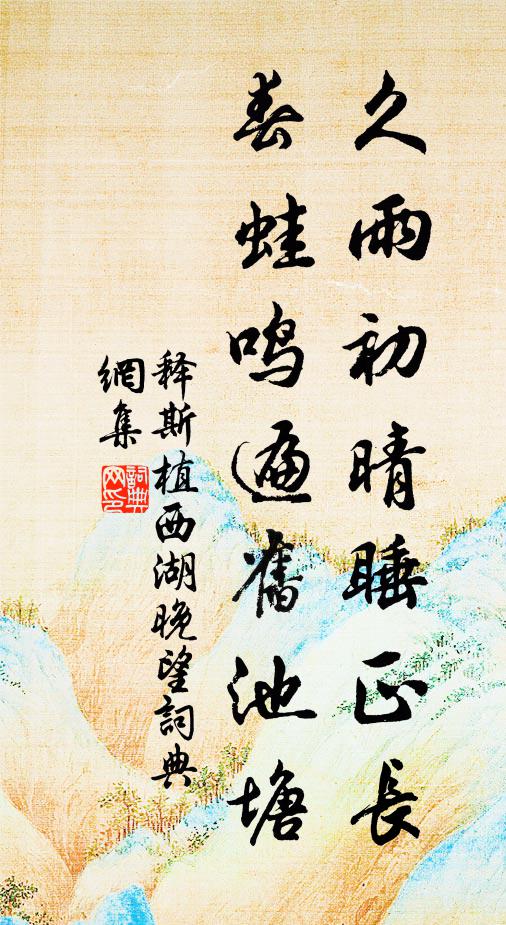 久雨初晴睡正長
春蛙鳴遍舊池塘
释斯植西湖晚望詞典
網集
詞典
网印